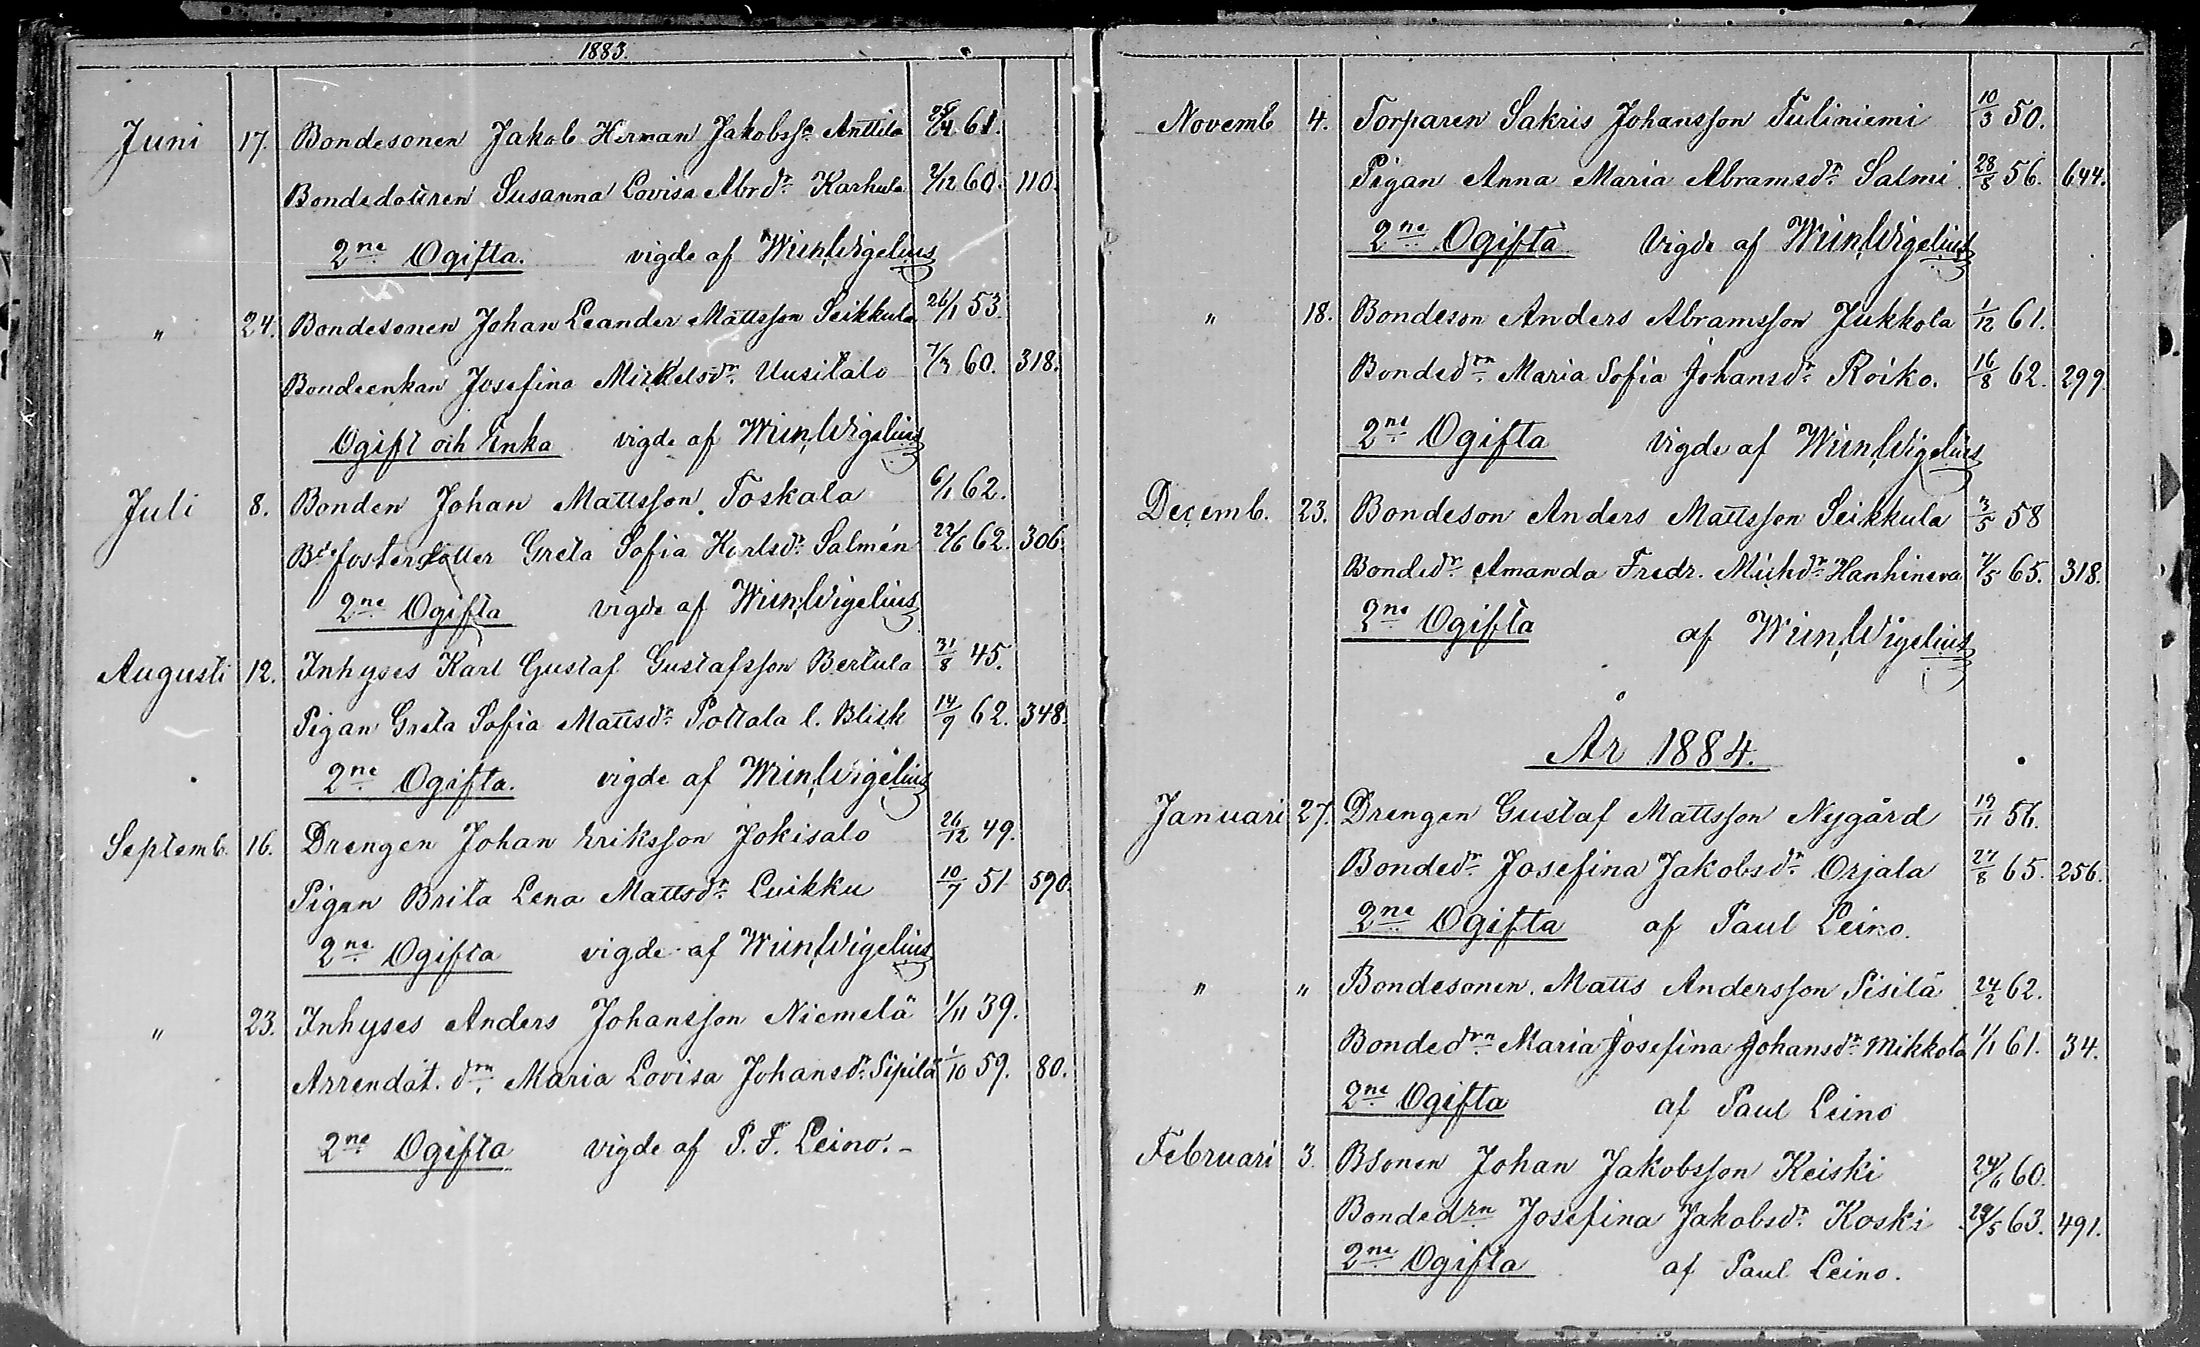 1883.
Juni 17. Bondesonen Jakob Herman Jakobss:n Anttila 61.
Bondedottren Susanna Lovisa Abrd:r Karhula 2/12 60. 110.
2:ne Ogifta. vigde af Wigelius
" 24. Bondesonen Johan Leander Mattsson Seikkula 26/1 53.
Bondeenkan Josefina Mickelsd:r Uusitalo 7/3 60. 318.
Ogift och Enka vigde af Wigelius
Juli 8. Bonden Johan Mattsson Toskala 6/1 62.
B:d fosterdotter Greta Sofia Karlsd:r Salmén 22/6 62. 306.
2:ne Ogifta vigde af Wigelius
Augusti 12. Inhyses Karl Gustaf Gustafsson Bertula 31/8 45.
Pigan Greta Sofia Mattsd:r Pottala l. Blisk 14/9 62. 348.
2:ne Ogifta. vigde af Wigelius
Septemb. 16. Drengen Johan Eriksson Jokisalo 26/12 49.
Pigan Brita Lena Mattsd:r Luikku 10/7 51 590.
2:ne Ogifta vigde af Wigelius
" 23. Inhyses Anders Johansson Niemelä 1/11 39.
Arrendat. d:rn Maria Lovisa Johansd:r Sipilä 1/10 59. 80.
2:ne Ogifta vigde af P. F. Leino.-
Novemb 4. Torparen Sakris Johansson Tuliniemi 10/3 50.
Pigan Anna Maria Abramsd:r Salmi 28/8 56. 644.
2:ne Ogifta Vigde af Wigelius
" 18. Bondeson Anders Abramsson Jukkola 1/12 61.
Bonded:rn Maria Sofia Johansd:r Roiko. 16/8 62. 299
2:ne Ogifta vigde af Wigelius
Decemb. 23. Bondeson Anders Mattsson Seikkula 3/5 58
Bonded:r Amanda Fredr. Michd:r Hanhineva 7/5 65. 318.
2:ne Ogifta af Wigelius
År 1884.
Januari 27. Drengen Gustaf Mattsson Nygård 19/11 56.
Bonded:r Josefina Jakobsd:r Orjala 27/8 65. 256.
2:ne Ogifta af Paul Leino.
" " Bondesonen. Matts Andersson Pisilä 24/2 62.
Bonded:rn Maria Josefina Johansd:r Mikkola 1/1 61. 34.
2:ne Ogifta af Paul Leino
Februari 3. Bsonen Johan Jakobsson Keiski 24/6 60.
Bondedrn Josefina Jakobsd:r Koski 29/5 63. 491.
2:ne Ogifta af Paul Leino.